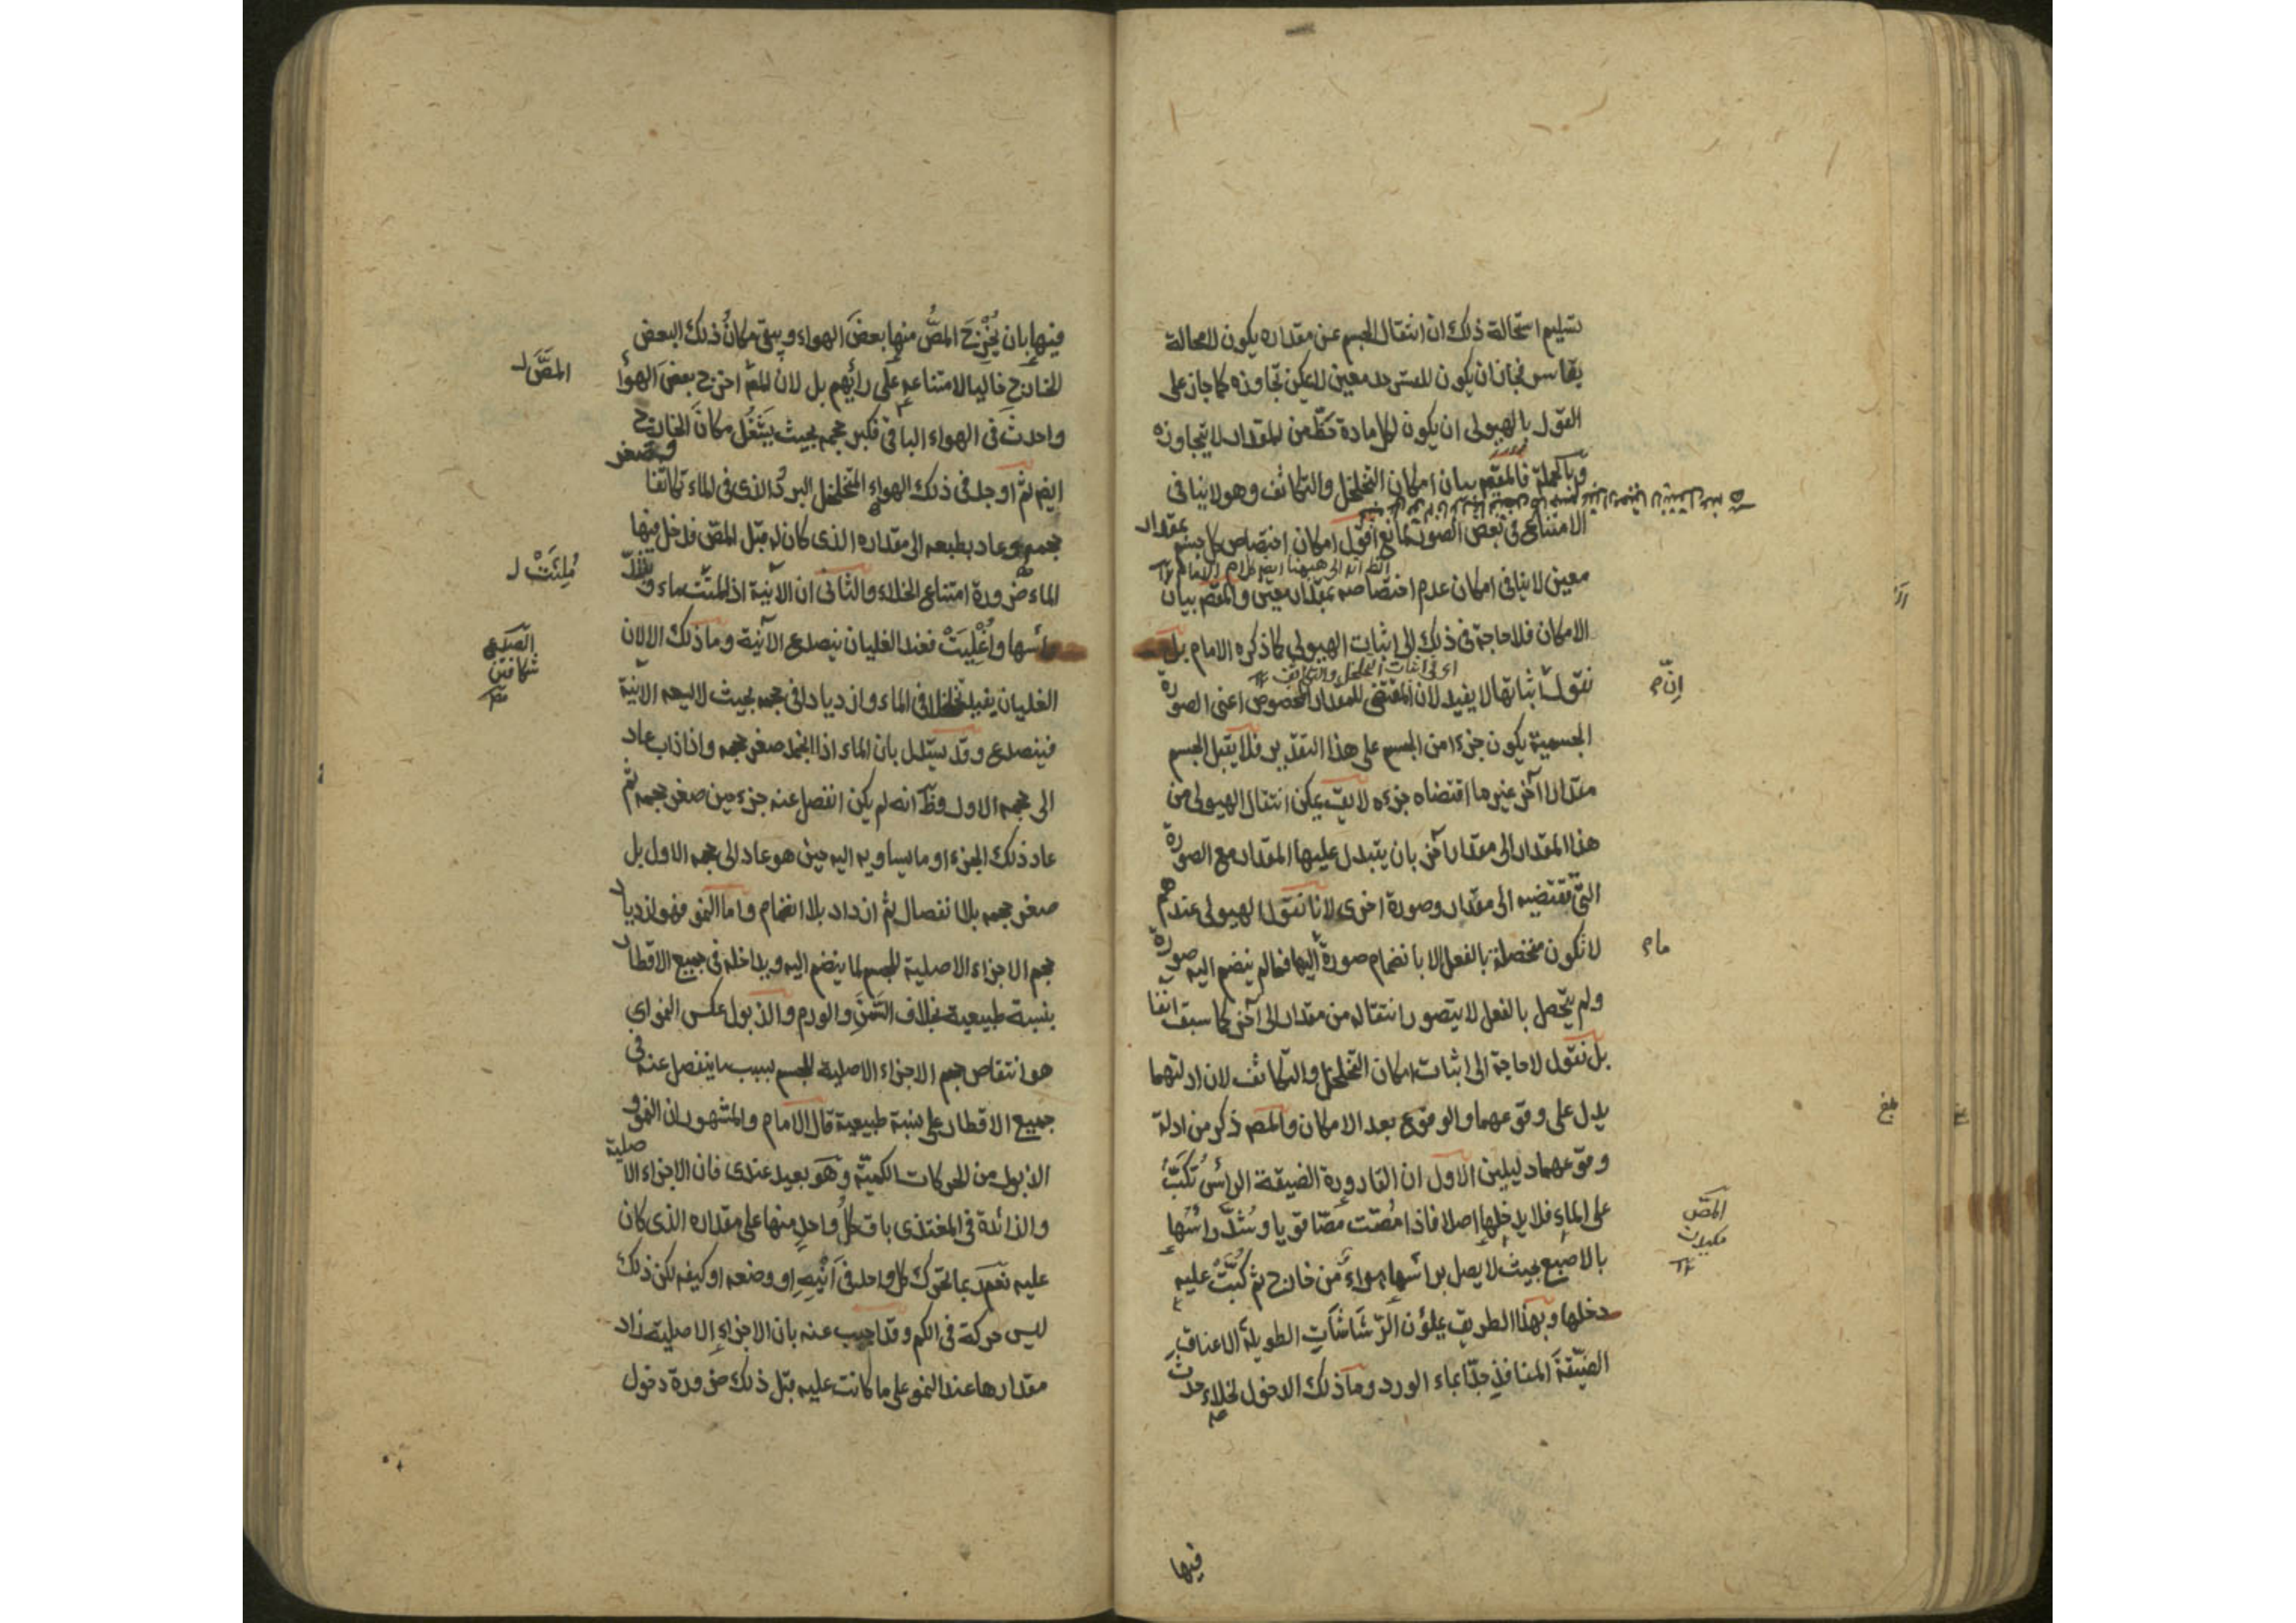 تسليم استحالة ذلك ان انتقال الجسم عن مقداره يكون لا محالة
بقاسر فجاز ان يكون للقسر حد معين لا يمكن تجاوزه كما جاز على
القول بالهيولى ان يكون لكل مادة حظ من المقدار لا يتجاوزه
وبالجملة فالمقصد بيان امكان التخلخل والتكاثف وهو لا ينافى
الامتناع فى بعض الصور لمانع اقول امكان اختصاص كل جسم بمقدار
معين لا ينافى امكان عدم اختصاصه بمقدار معين والمقصد بيان
الامكان فلا حاجة فى ذلك الى اثبات الهيولى كما ذكره الامام بل
اى فى اثبات التخلخل والتكاثف
نقول اثباتها لا يفيد لان المقتضى للمقدار المخصوص اعنى الصورة
الجسمية يكون جزءا من الجسم على هذا التقدير فلا يقبل الجسم
مقدارا آخر غير ما اقتضاه جزءه لا يق يمكن انتقال الهيولى من
هذا المقدار الى مقدار آخر بان يتبدل عليها المقدار مع الصورة
التى تقتضيه الى مقدار وصورة اخرى لانا نقول الهيولى عندهم
لا تكون متحصلة بالفعل الا بانضمام صورة اليها فما لم ينضم اليه صورة
ولم يتحصل بالفعل لا يتصور انتقاله من مقدار الى آخر كما سبق آنفا
بل نقول لا حاجة الى اثبات امكان التخلخل والتكاثف لان ادلتهما
يدل على وقوعهما والوقوع بعد الامكان والمص ذكر من ادلة
وقوعهما دليلين الاول ان القارورة الضيقة الرأس تُكَبُّ
على الماء فلا يدخلها اصلا فاذا مُصّت مصّا قويا وسُدّ رأسُها
بالاصبع بحيث لا يصل برأسها هواءٌ من خارج ثم كُبّتْ عليه
دخلها وبهذا الطريق يملؤن الرّشّاشاتِ الطويلة الاعناق
الضيّقةَ المنافذِ جدّا بماء الورد وما ذلك الدخول لخلاء حدث
فيها
اِنّ
ماء
المصّ
مكيدن
بلغ
فيها بان يُخْرِجَ المصُّ منها بعضَ الهواء ويبقى مكانُ ذلك البعض
الخارج خاليا لامتناعه على رأيهم بل لان المصّ اخرج بعضَ الهواء
واحدثَ فى الهواء الباقى فكبر حجمه بحيث يَشْغُل مكانَ الخارج
ايضا ثم اوجد فى ذلك الهواءِ المتخلخل البردُ الذى فى الماء تكاثفا وصغر
حجمه وعاد بطبعه الى مقداره الذى كان له قبل المصّ فدخل فيها
الماء ضرورة امتناع الخلاء والثانى ان الآنية اذا ملئت ماء وشدّ
رأسها واُغْلِيَتْ فعند الغليان ينصدع الآنية وما ذلك الا لان
الغليان يفيد تخلخلا فى الماء وازديادا فى حجمه بحيث لا يسعه الآنية
فينصدع وقد يستدل بان الماء اذا انجمد صغر حجمه واذا ذاب عاد
الى حجمه الاول وظ انه لم يكن انفصل عنه جزء حين صغر حجمه ثم
عاد ذلك الجزء او ما يساويه اليه حين هو عاد الى حجمه الاول بل
صغر حجمه بلا انفصال ثم ازداد بلا انضمام واما النمو فهو ازدياد
حجم الاجزاء الاصلية للجسم لما ينضم اليه ويداخله فى جميع الاقطار
بنسبة طبيعية بخلاف السّمَن والورم والذبول عكس النمو اى
هو انتقاص حجم الاجزاء الاصلية للجسم بسبب ما ينفصل عنه فى
جميع الاقطار على نسبة طبيعية قال الامام والمشهور ان النمو و
الذبول من الحركات الكميّة وهو بعيد عندى فان الاجزاء الاصلية
والزائدة فى المغتذى باقٍ كلُّ واحدٍ منها على مقداره الذى كان
عليه نعم ربما تحرك كل واحد فى اَيْنِهِ او وضعه او كيفه لكن ذلك
ليس حركة فى الكم وقد اجيب عنه بان الاجزاء الاصلية زاد
مقدارها عند النمو على ما كانت عليه قبل ذلك ضرورة دخول
المصّ
مُلِئَتْ
الصدع
شكافتن